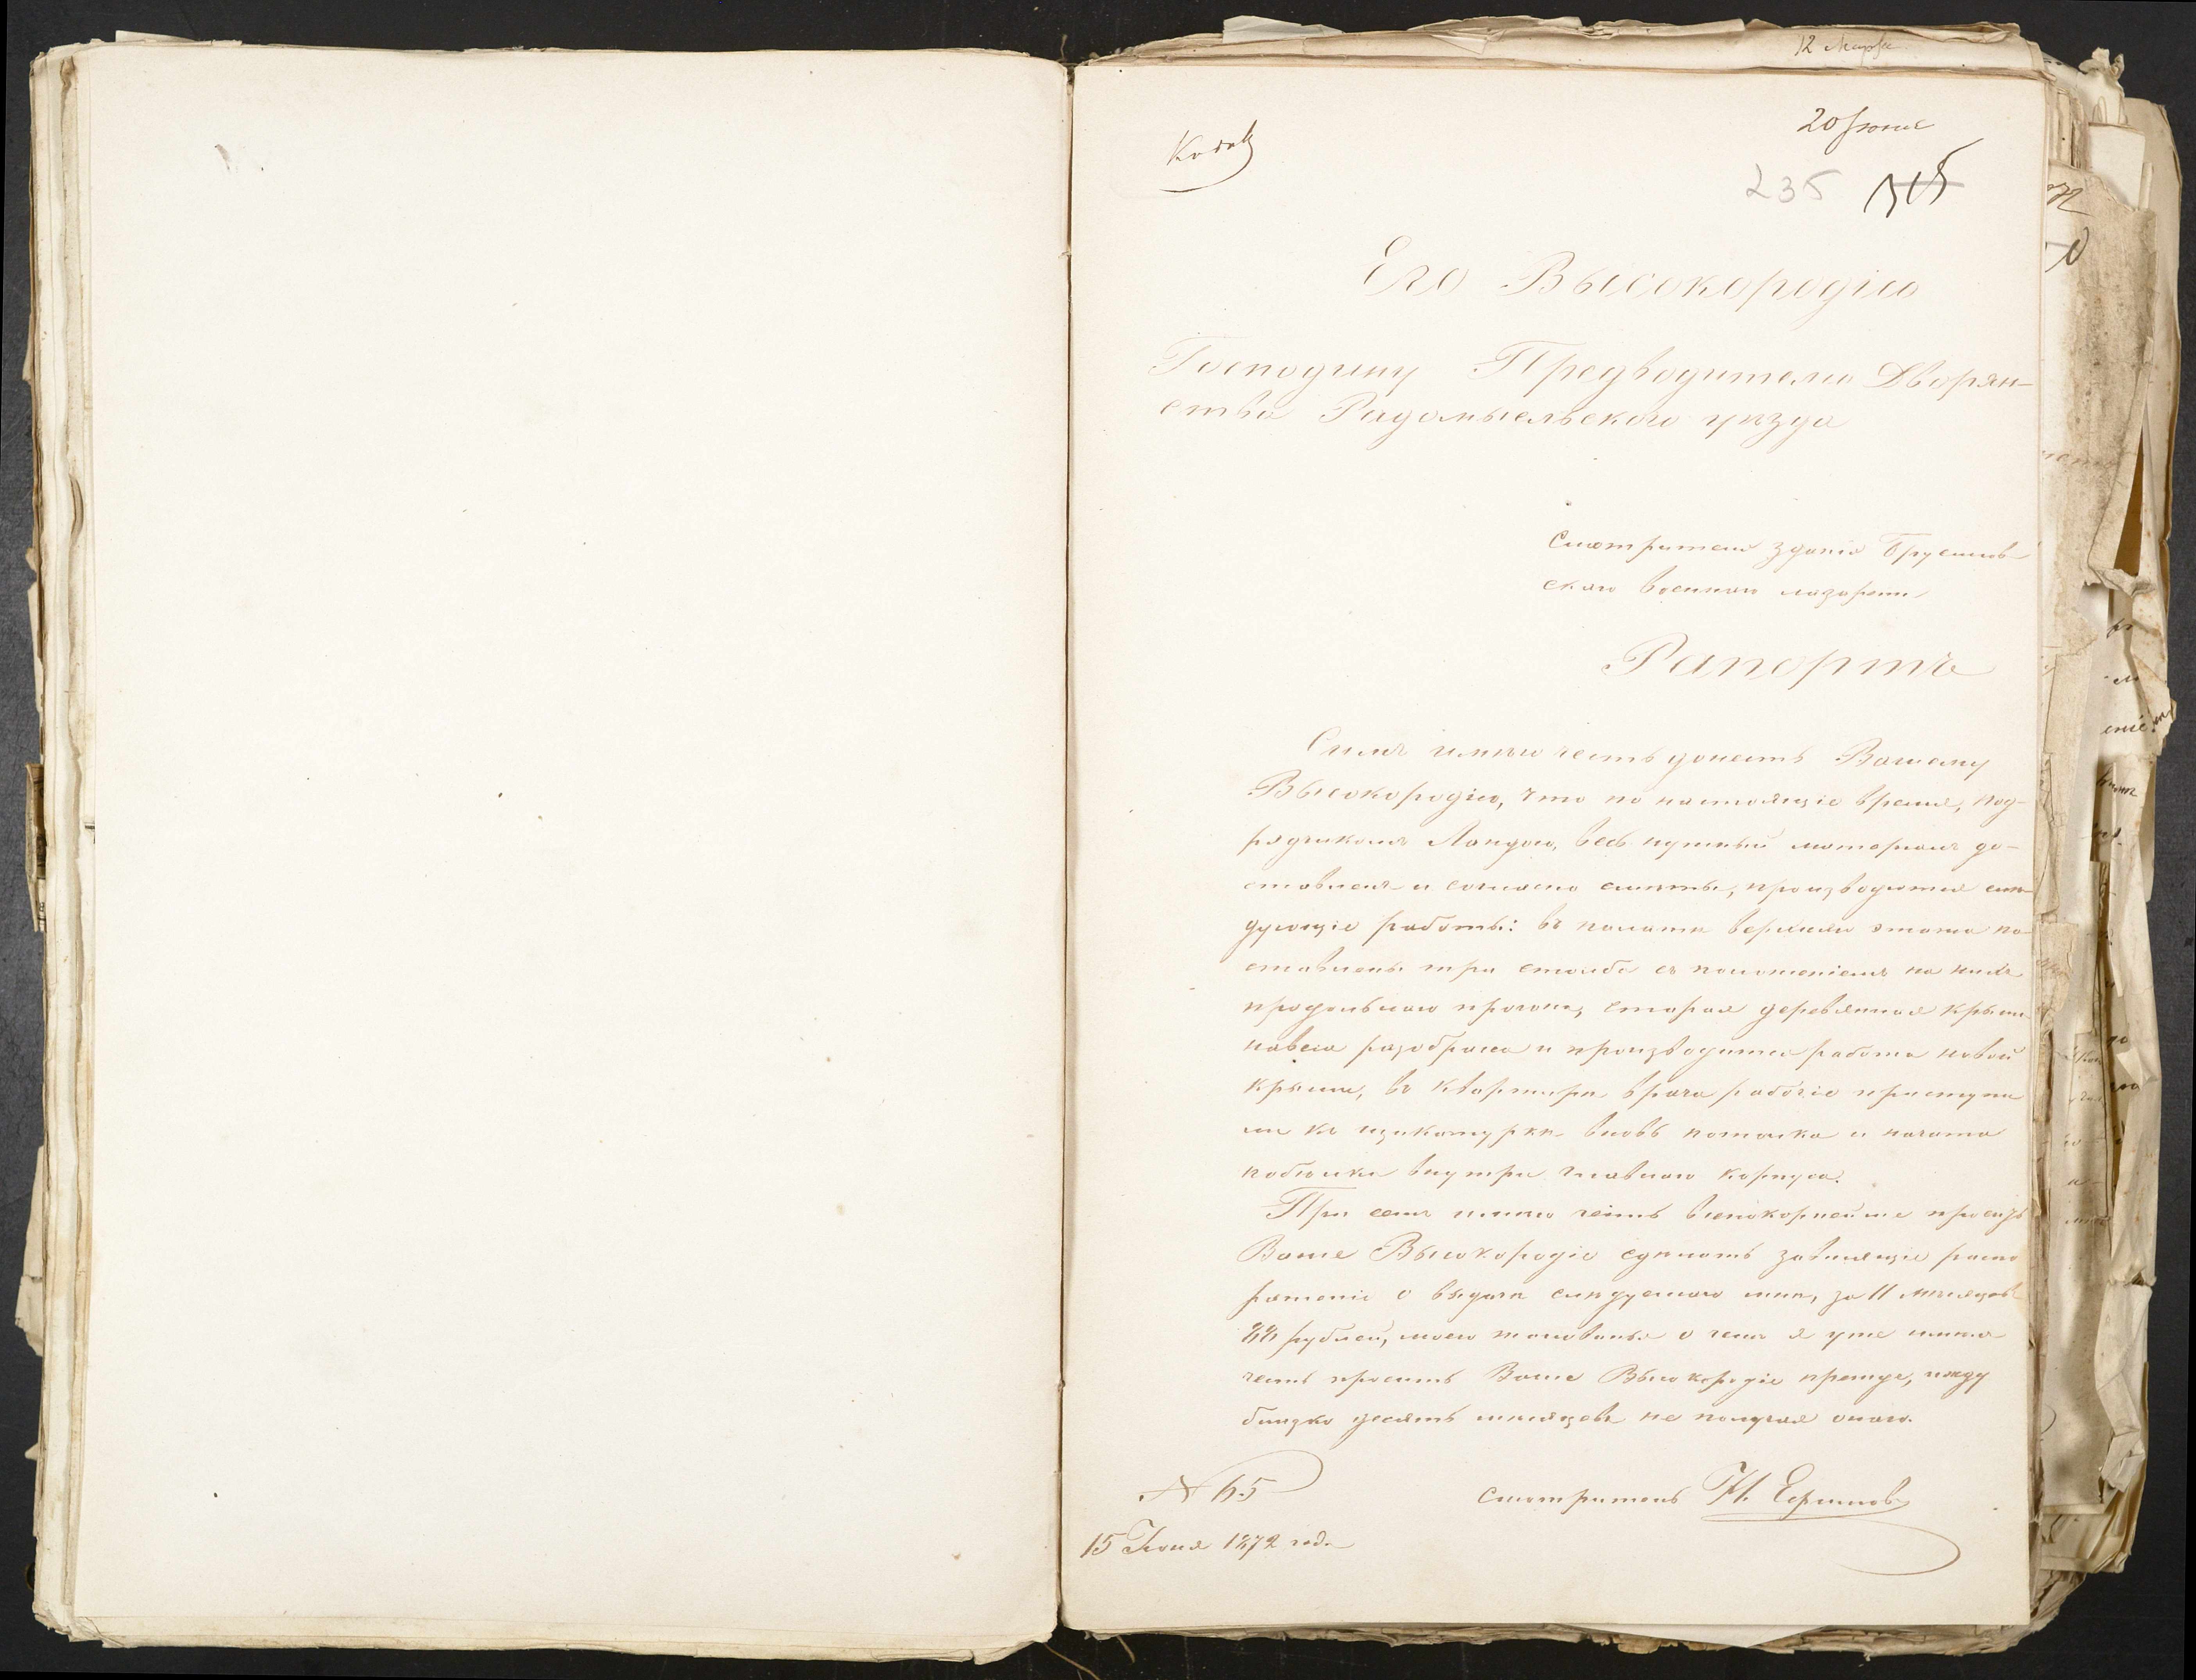 12 Марта
20 Июня
235 315
Его Высокородію
Господину Предводителю Дворян-
ства Радомысльского уѣзда
Смотрителя зданія Брусилов-
скаго военнаго лазарета
Рапортъ
Симъ имѣю честь донесть Вашему
Высокородію, что по настоящіе время, под-
рядчикомъ Ландою, весь нужный матеріалъ до-
ставленъ и согласно смѣты, производятся слѣ-
дующіе работы: въ палатѣ верхняго этажа по-
ставлены три столба съ положеніемъ на нихъ
продольнаго прогона, старая деревянная крыша
навеса разобрана и производится работа новой
крыши, въ квартирѣ врача рабочіе приступи
ли къ щикатуркѣ вновь потолка и начата
побѣлка внутри главнаго корпуса.
При семъ имѣю честь всепокорнейше просить
Ваше Высокородіе сдѣлать зависящіе распо
ряженіе о выдачи слѣдуемаго мнѣ, за 11 мѣсяцовъ
88 рублей, моего жалованья о чемъ я уже имѣлъ
честь просить Ваше Высокородіе прежде,
близко десять мѣсяцевъ не получая онаго.
N 65
смотритель Н. Ефимовъ
15 Іюня 1872 года